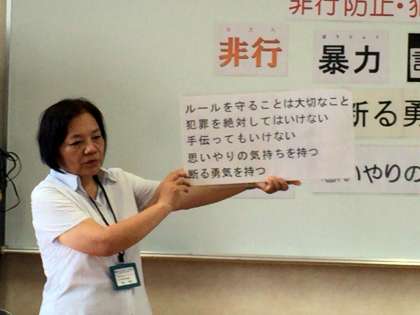 非行防止・犯
非行
暴力
ルールを守ることは大切なこと
犯罪を絶対してはいけない
手伝ってもいけない
思いやりの気持ちを持つ
断る勇気を持つ
断る勇
思いやりの